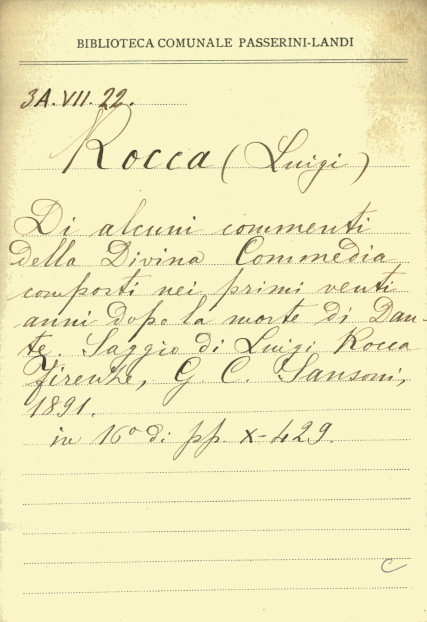 BIBLIOTECA COMUNALE PASSERINI-LANDI
3A.VII.22.
Rocca (Luigi)
Di alcuni commenti
della Divina Commedia
composti nei primi venti
anni dopo la morte di Dan-
te. Saggio di Luigi Rocca
Firenze, G. C. Sansoni,
1891.
in 16º di pp. X-429.
C